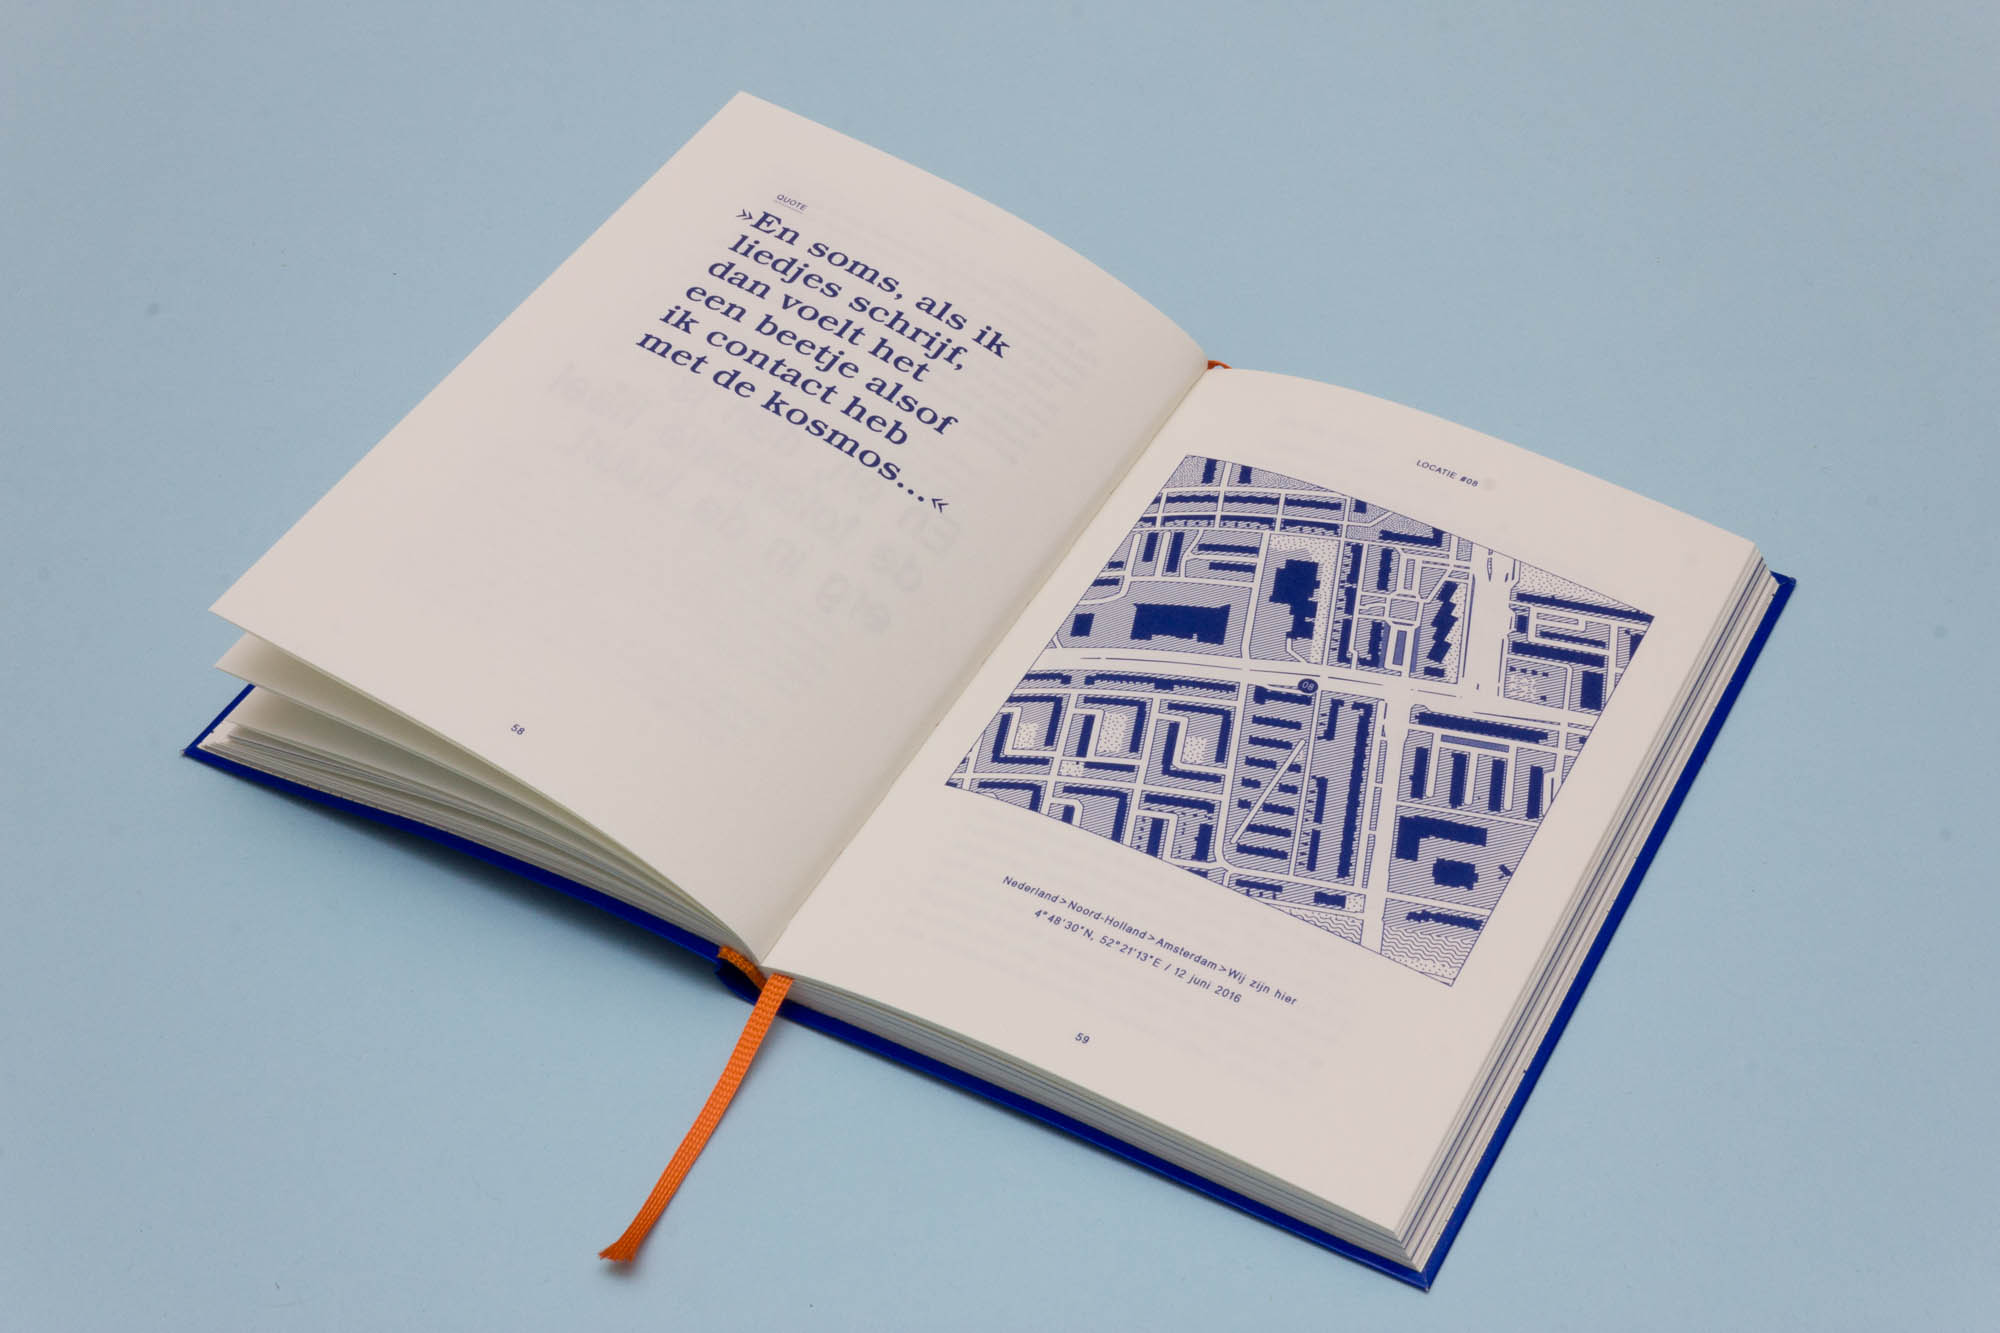 QUOTE
»En soms, als ik
liedjes schrijf,
dan voelt het
een beetje alsof
ik contact heb
met de kosmos...«
58
LOCATIE #08
08
Nederland>Noord-Holland>Amsterdam>Wij zijn hier
4°48'30"N, 52°21'13"E / 12 juni 2016
59